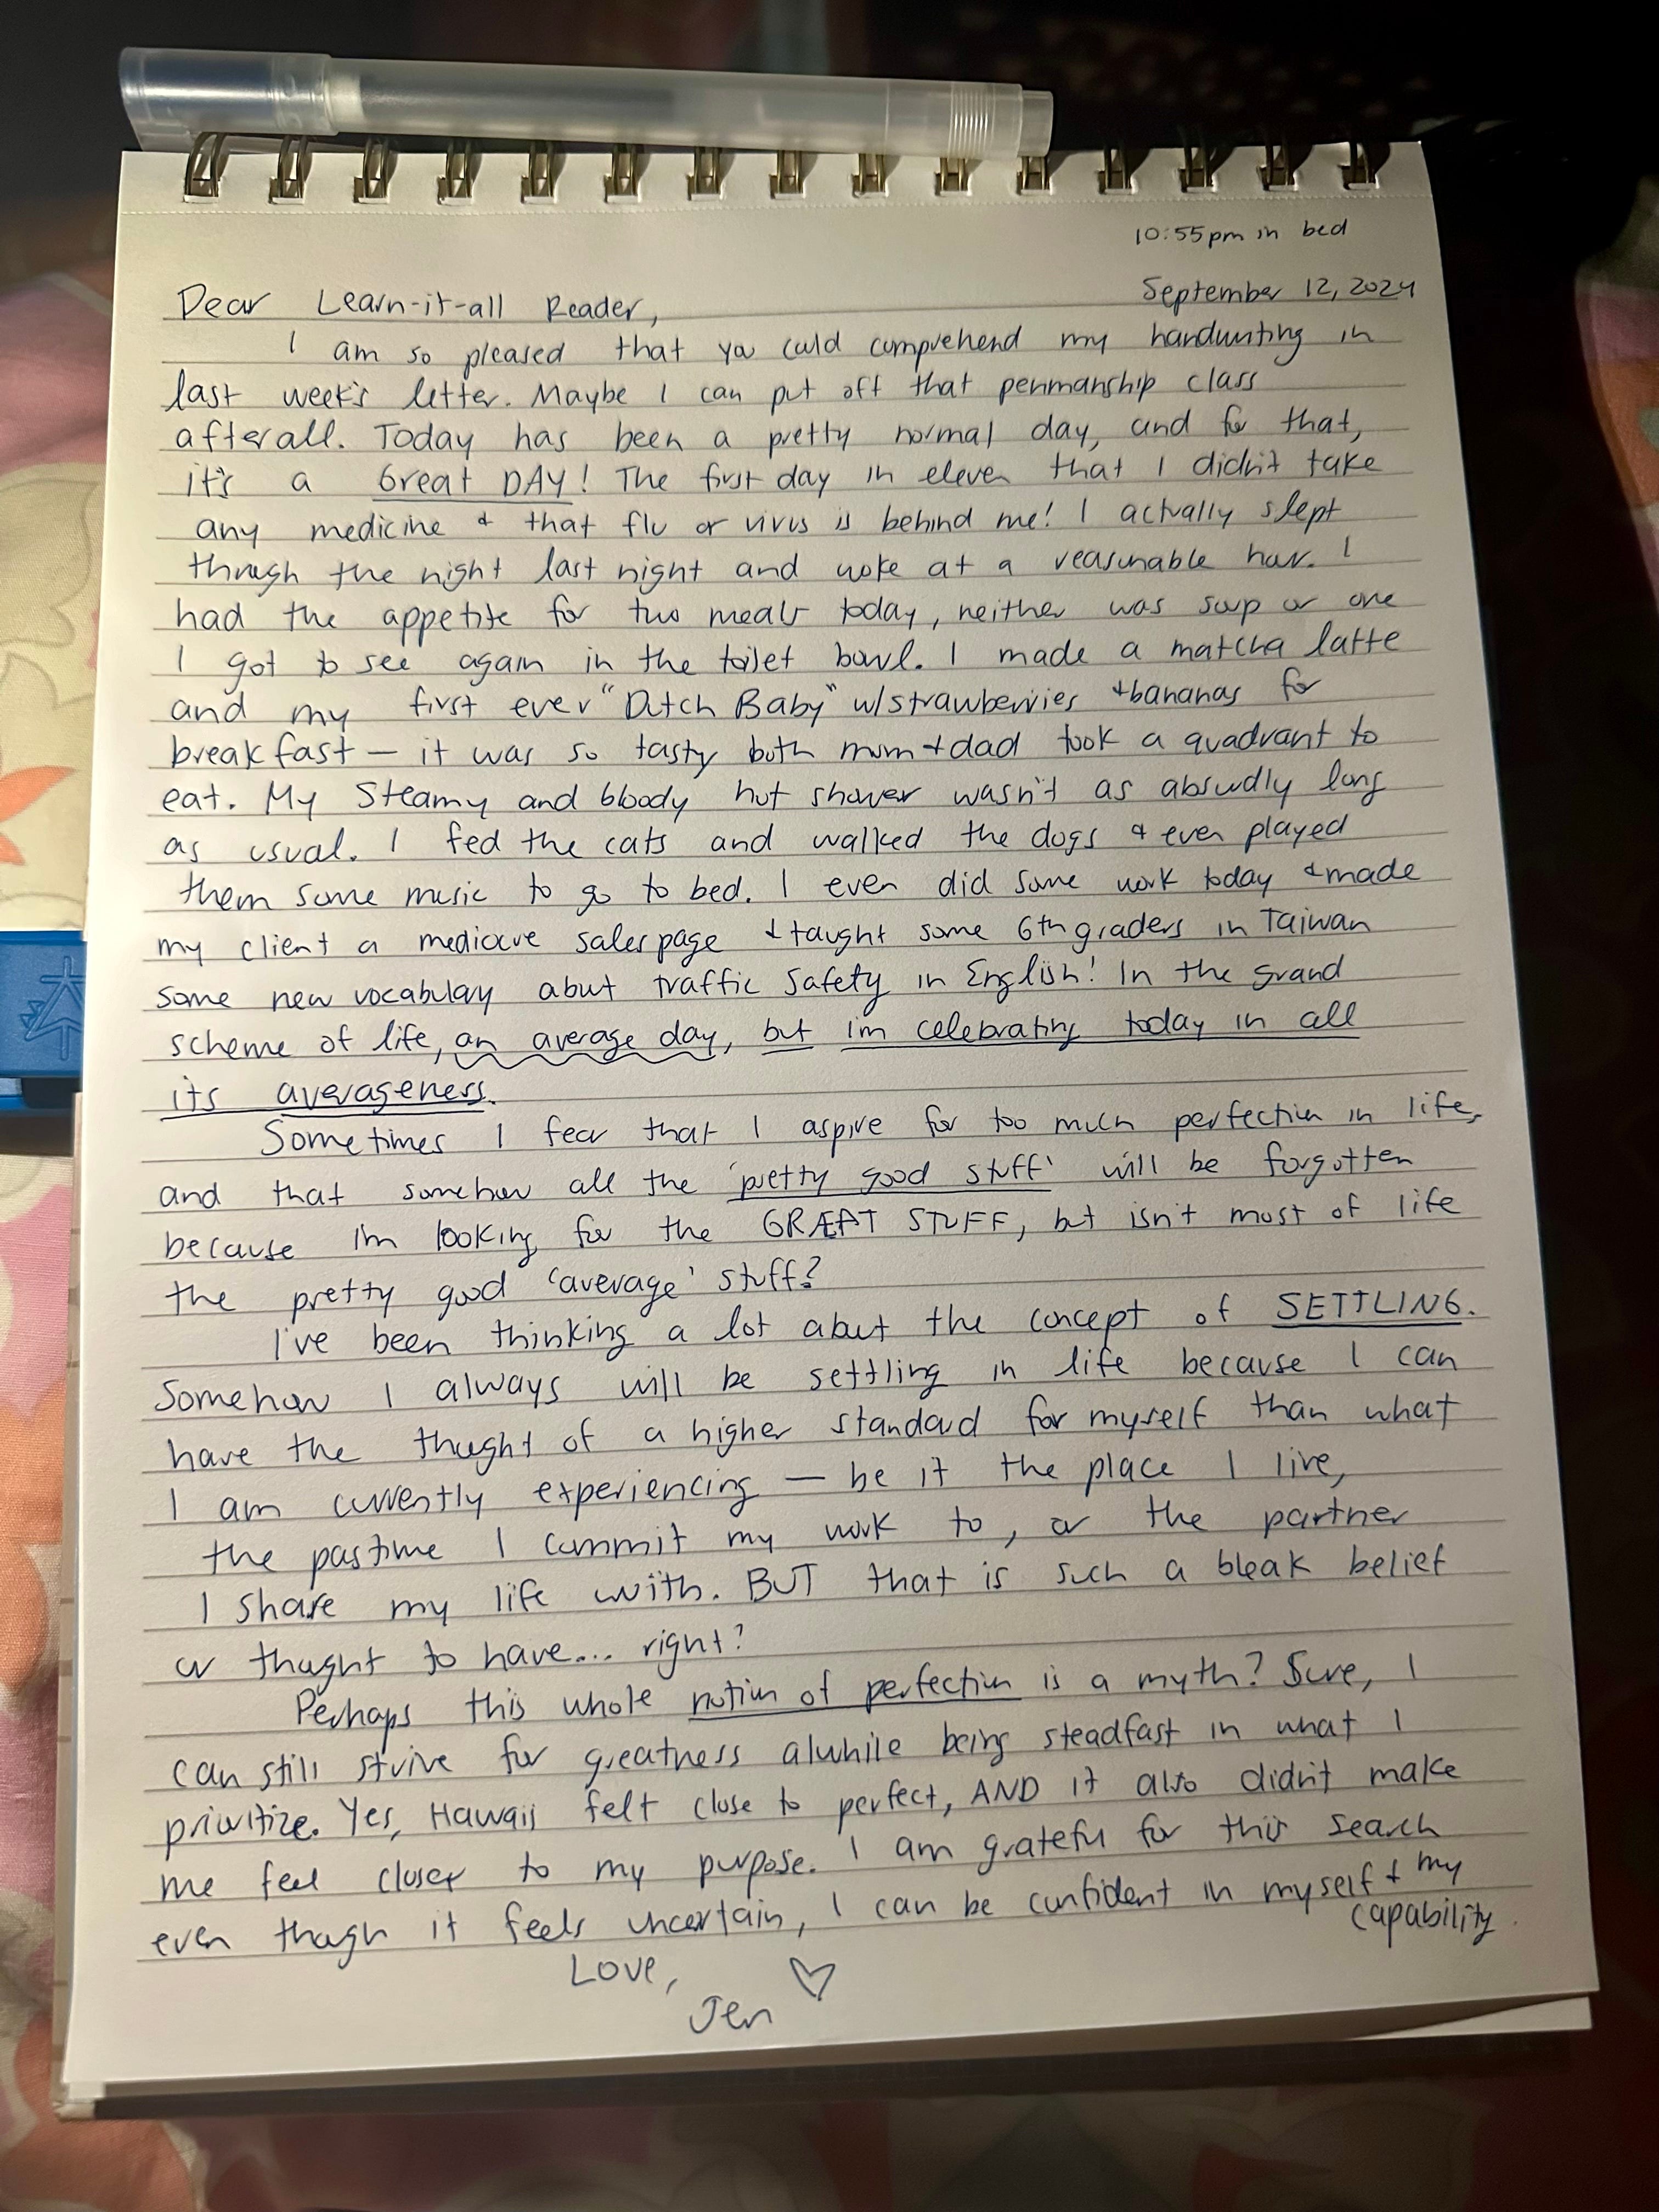 10:55pm in bed
September 12, 2024
Dear Learn-it-all Reader,
I am so pleased that you could comprehend my handwriting in
last week's letter. Maybe I can put off that penmanship class
afterall. Today has been a pretty normal day, and for that,
it's a Great DAY! The first day in eleven that I didn't take
any medicine & that flu or virus is behind me! I actually slept
through the night last night and woke at a reasonable hour. I
had the appetite for two meals today, neither was soup or one
I got to see again in the toilet bowl. I made a matcha latte
and my first ever "Dutch Baby" w/strawberries +bananas for
breakfast — it was so tasty both mom+dad took a quadrant to
eat. My Steamy and bloody hot shower wasn't as absurdly long
as usual. I fed the cats and walked the dogs & even played
them some music to go to bed. I even did some work today &made
my client a mediocre sales page &taught some 6th graders in Taiwan
some new vocabulary about traffic safety in English! In the grand
scheme of life, an average day, but im celebrating today in all
its averageness.
Sometimes I fear that I aspire for too much perfection in life,
and that somehow all the 'pretty good stuff' will be forgotten
because im looking for the GREAT STUFF, but isn't most of life
the pretty good 'average' stuff?
I've been thinking a lot about the concept of SETTLING.
Somehow I always will be settling in life because I can
have the thought of a higher standard for myself than what
I am currently experiencing — be it the place I live,
the pastime I commit my work to, or the partner
I share my life with. BUT that is such a bleak belief
or thought to have... right?
Perhaps this whole notion of perfection is a myth? Sure, I
can still strive for greatness alwhile being steadfast in what I
prioritize. Yes, Hawaii felt close to perfect, AND it also didn't make
me feel closer to my purpose. I am grateful for this search
even though it feels uncertain, I can be confident in myself + my
capability.
Love,
Jen